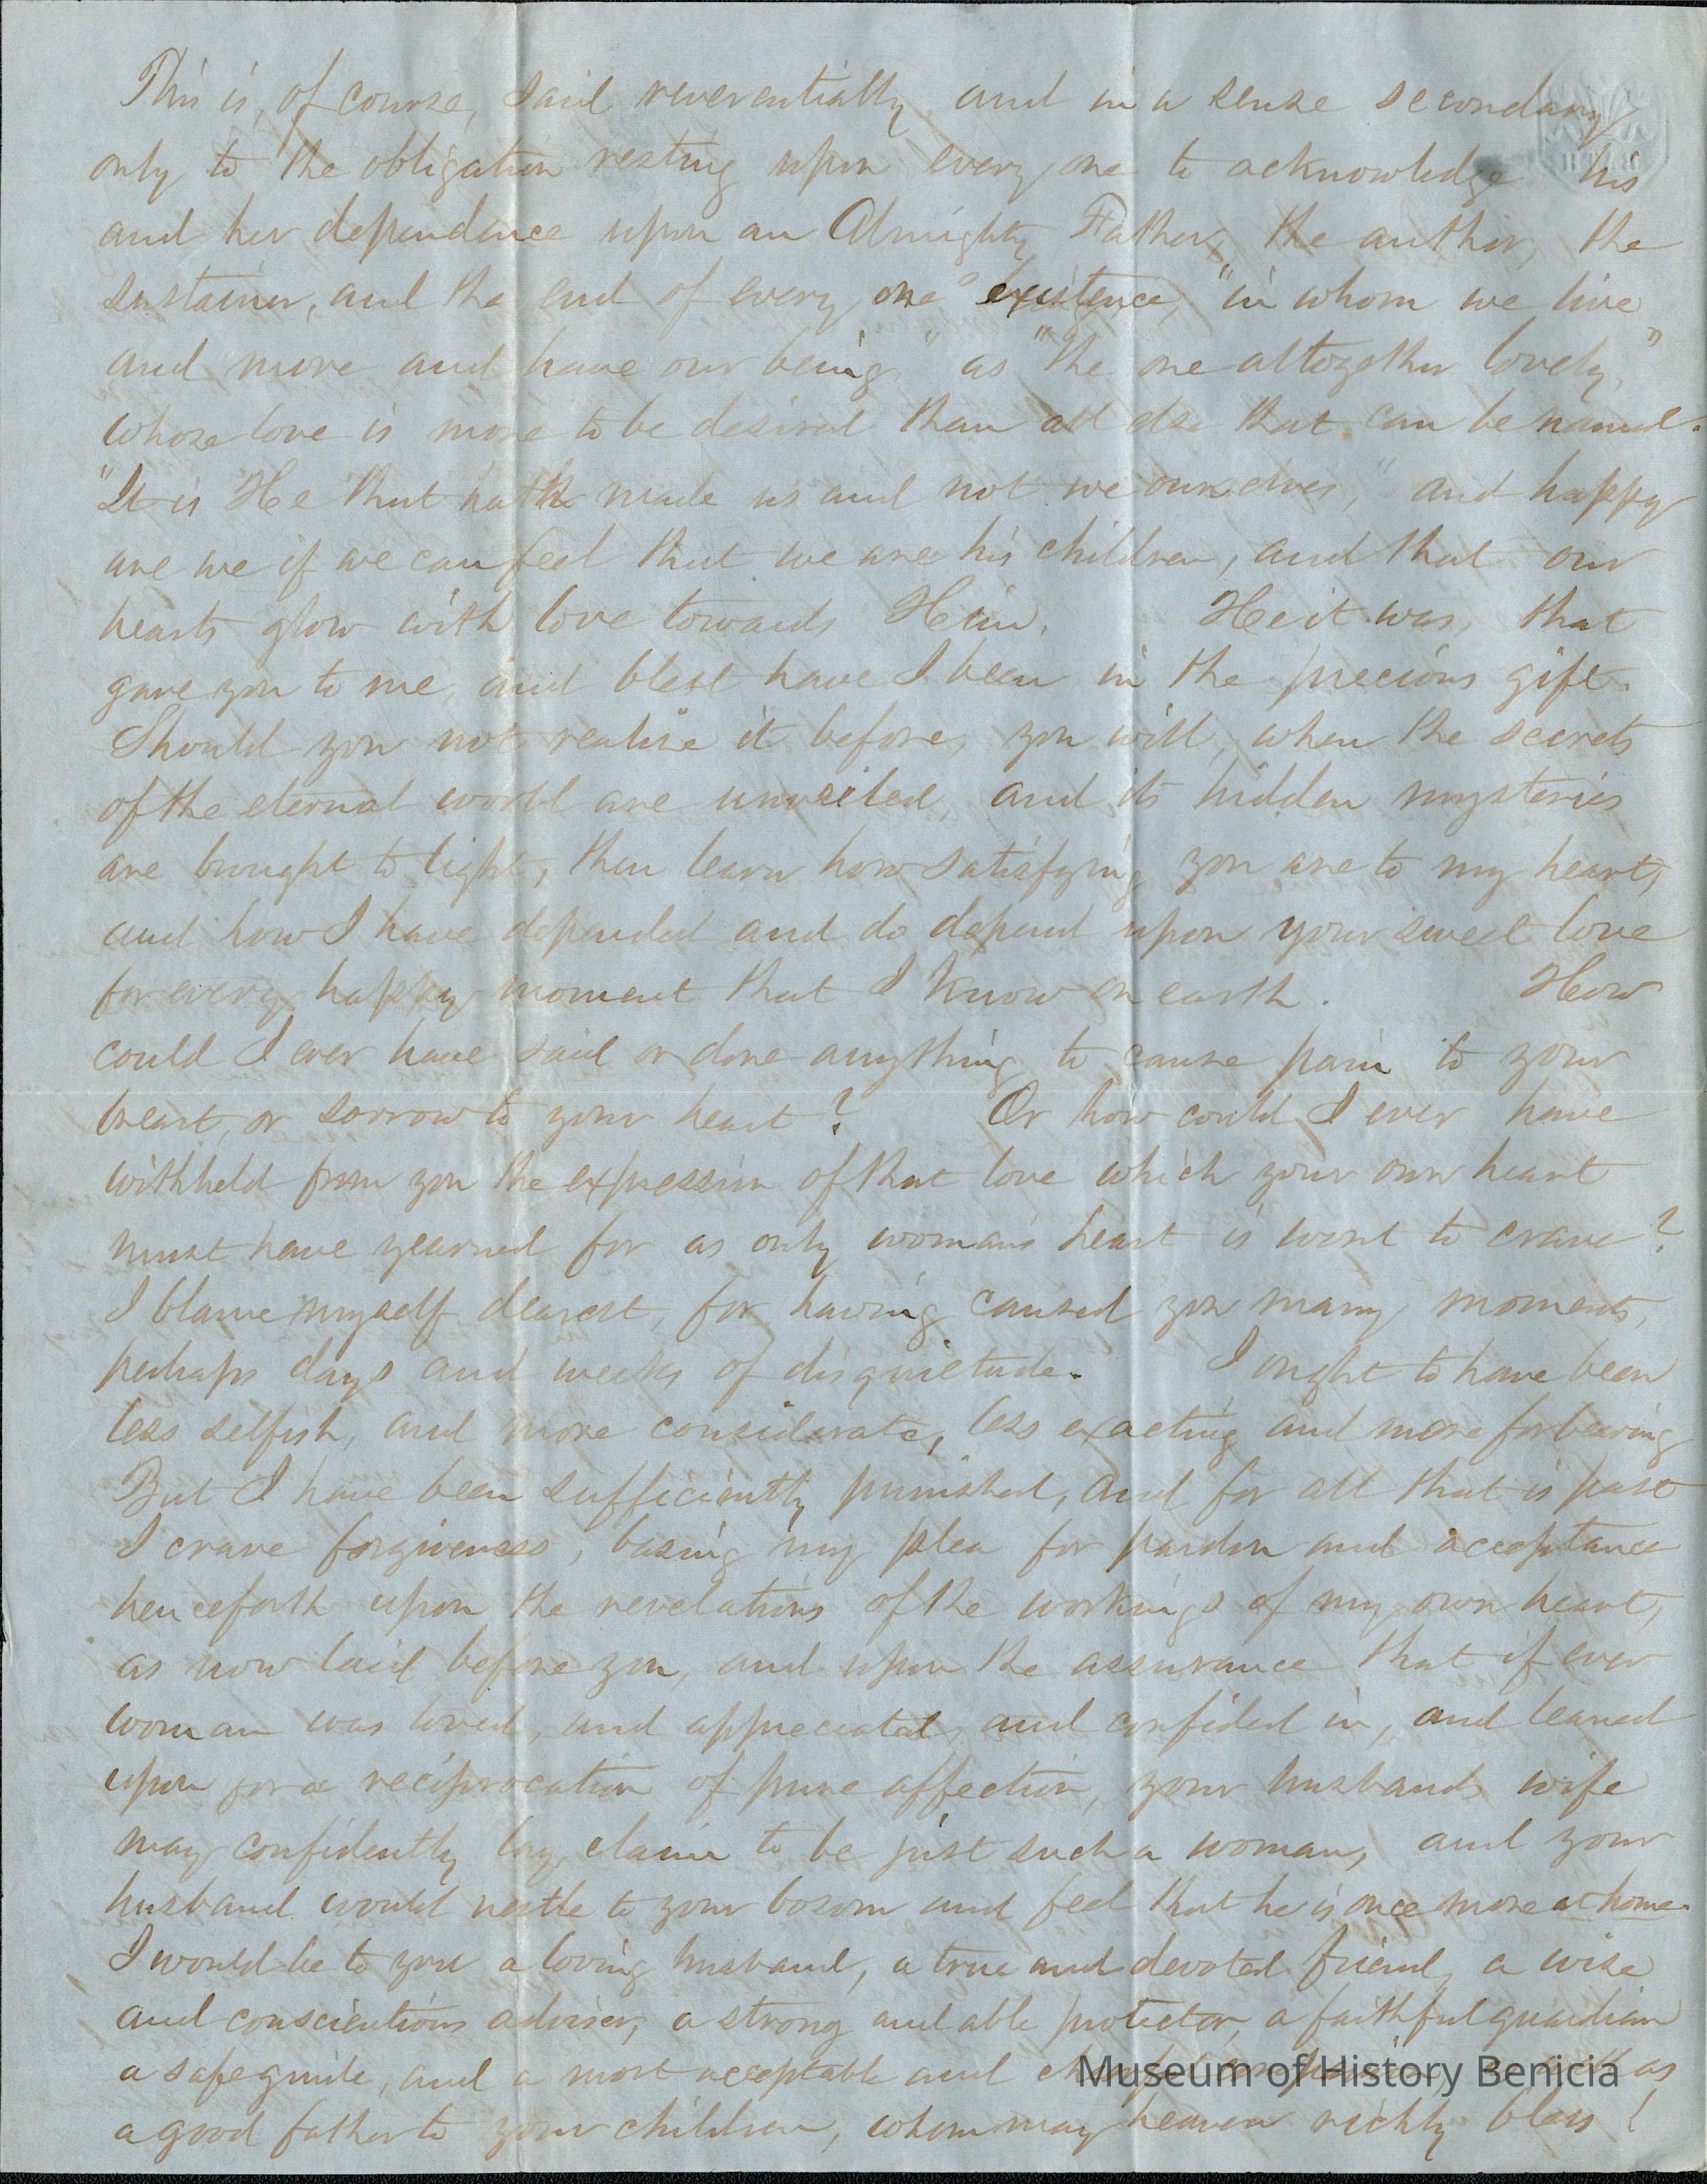 This is, of course, said reverentially and in a sense secondary
only to the obligation resting upon every one to acknowledge his
and her dependence upon an Almighty Father, the author, the
sustainer, and the end of every one's existence, "in whom we live
and move and have our being," as "the one altogether lovely,"
whose love is more to be desired than all else that can be named.
"It is He that hath made us and not we ourselves," and happy
are we if we can feel that we are his children, and that our
hearts glow with love towards Him. He it was, that
gave you to me, and blest have I been in the precious gift.
Should you not realise it before, you will, when the secrets
of the eternal world are unveiled, and its hidden mysteries
are brought to light, then learn how satisfying you are to my heart,
and how I have depended and do depend upon your sweet love
for every happy moment that I know on earth. How
could I ever have said or done anything to cause pain to your
breast, or sorrow to your heart? Or how could I ever have
withheld from you the expression of that love which your own heart
must have yearned for as only woman's heart is wont to crave?
I blame myself dearest, for having caused you many moments,
perhaps days and weeks of disquietude. I ought to have been
less selfish, and more considerate, less exacting and more forbearing
But I have been sufficiently punished, and for all that is past
I crave forgiveness, basing my plea for pardon and acceptance
henceforth upon the revelations of the workings of my own heart,
as now laid before you, and upon the assurance that if ever
woman was loved, and appreciated, and confided in, and leaned
upon for a reciprocation of pure affection, your husbands wife
may confidently lay claim to be just such a woman, and your
husband would nestle to your bosom and feel that he is once more at home.
I would be to you a loving husband, a true and devoted friend, a wise
and conscientious adviser, a strong and able protector, a faithful guardian
a safe guide, and a most acceptable and as
a good father to your children, whom may heaven richly bless!
Museum of History Benicia